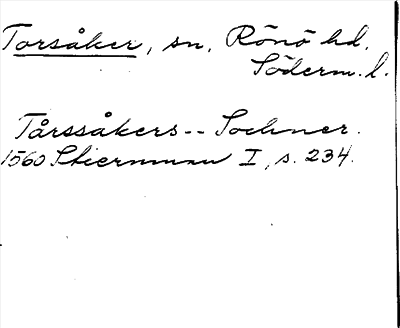 Torsåker, sn, Rönö hd.
Söderm. l.
Tårssåkers-- Sochner.
1560 Stiernman I, s. 234.